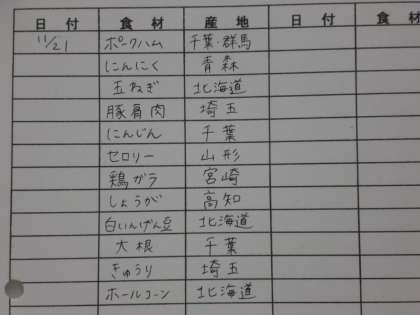 日付 食材 産地 日付 食材
11/21 ポークハム 千葉・群馬
にんにく 青森
玉ねぎ 北海道
豚肩肉 埼玉
にんじん 千葉
セロリー 山形
鶏ガラ 宮崎
しょうが 高知
白いんげん豆 北海道
大根 千葉
きゅうり 埼玉
ホールコーン 北海道